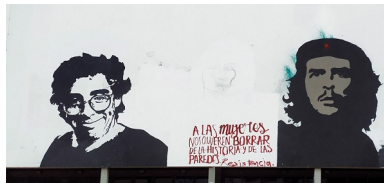 A LAS mujeres
NOS QUIEREN BORRAR
DE LA HISTORIA Y DE LAS
PAREDES. Resistencia.